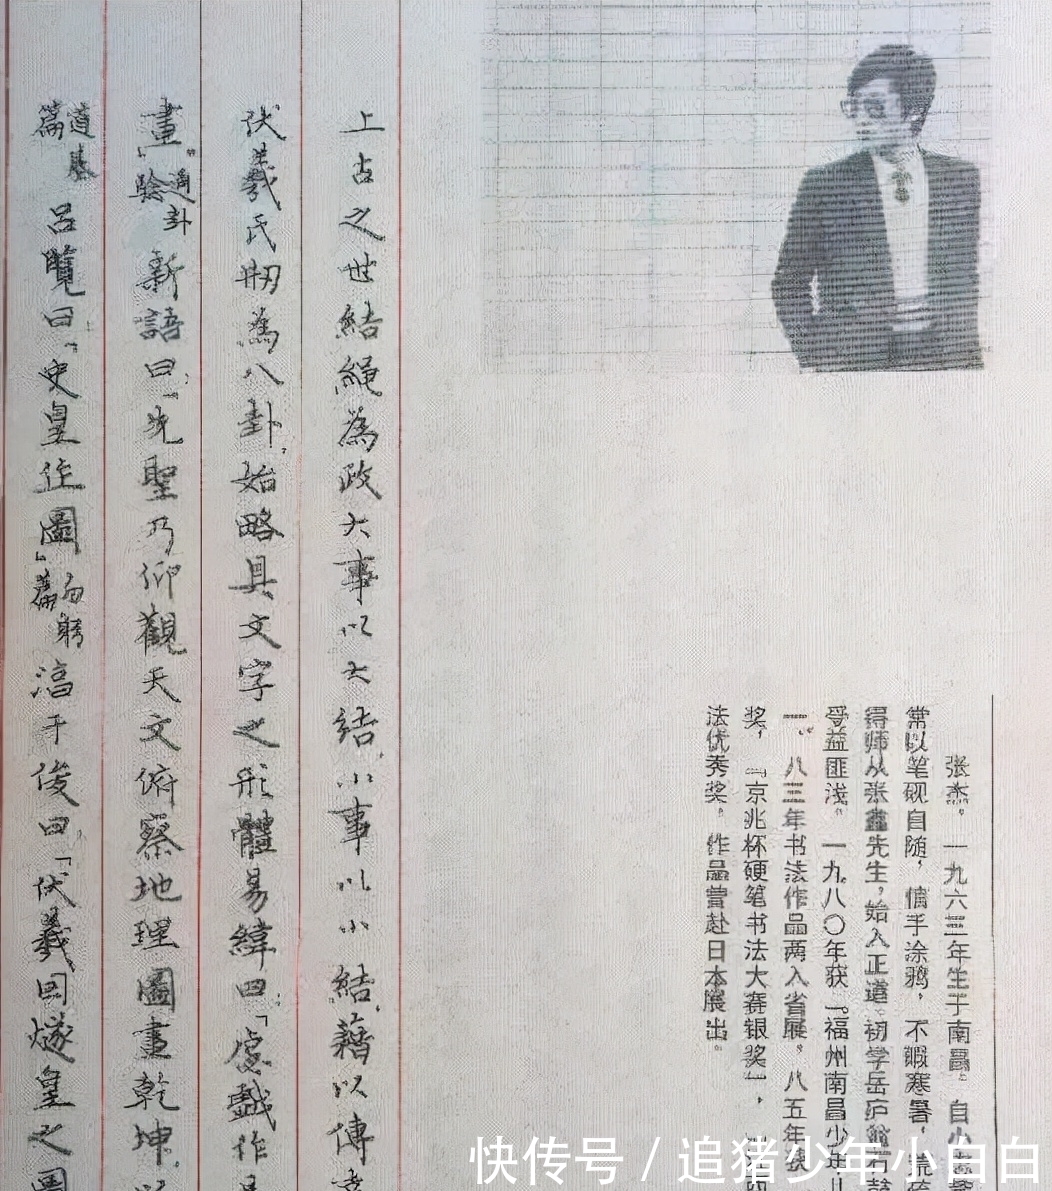 张杰。一九六三年生于南昌。自小
常以笔砚自随，信手涂鸦，不暇寒暑，
得师从张鑫先生，始入正道。初学岳庐
受益匪浅。一九八〇年获“福州南昌少年儿
一。八三年书法作品两入省展，八五年获
奖，“京兆杯硬笔书法大赛银奖”，
法优秀奖。作品曾赴日本展出。
上古之世結繩為政大事以大結，小事以小結，藉以傳
伏羲氏剏為八卦，始略具文字之形體易緯曰，「虙戲作
畫」通卦驗新語曰，「先聖乃仰觀天文俯察地理圖畫乾坤，以
道基篇呂覽曰，「史皇作圖」勿躬篇湻于俊曰，「伏羲因燧皇之圖
快传号 / 追猪少年小白白